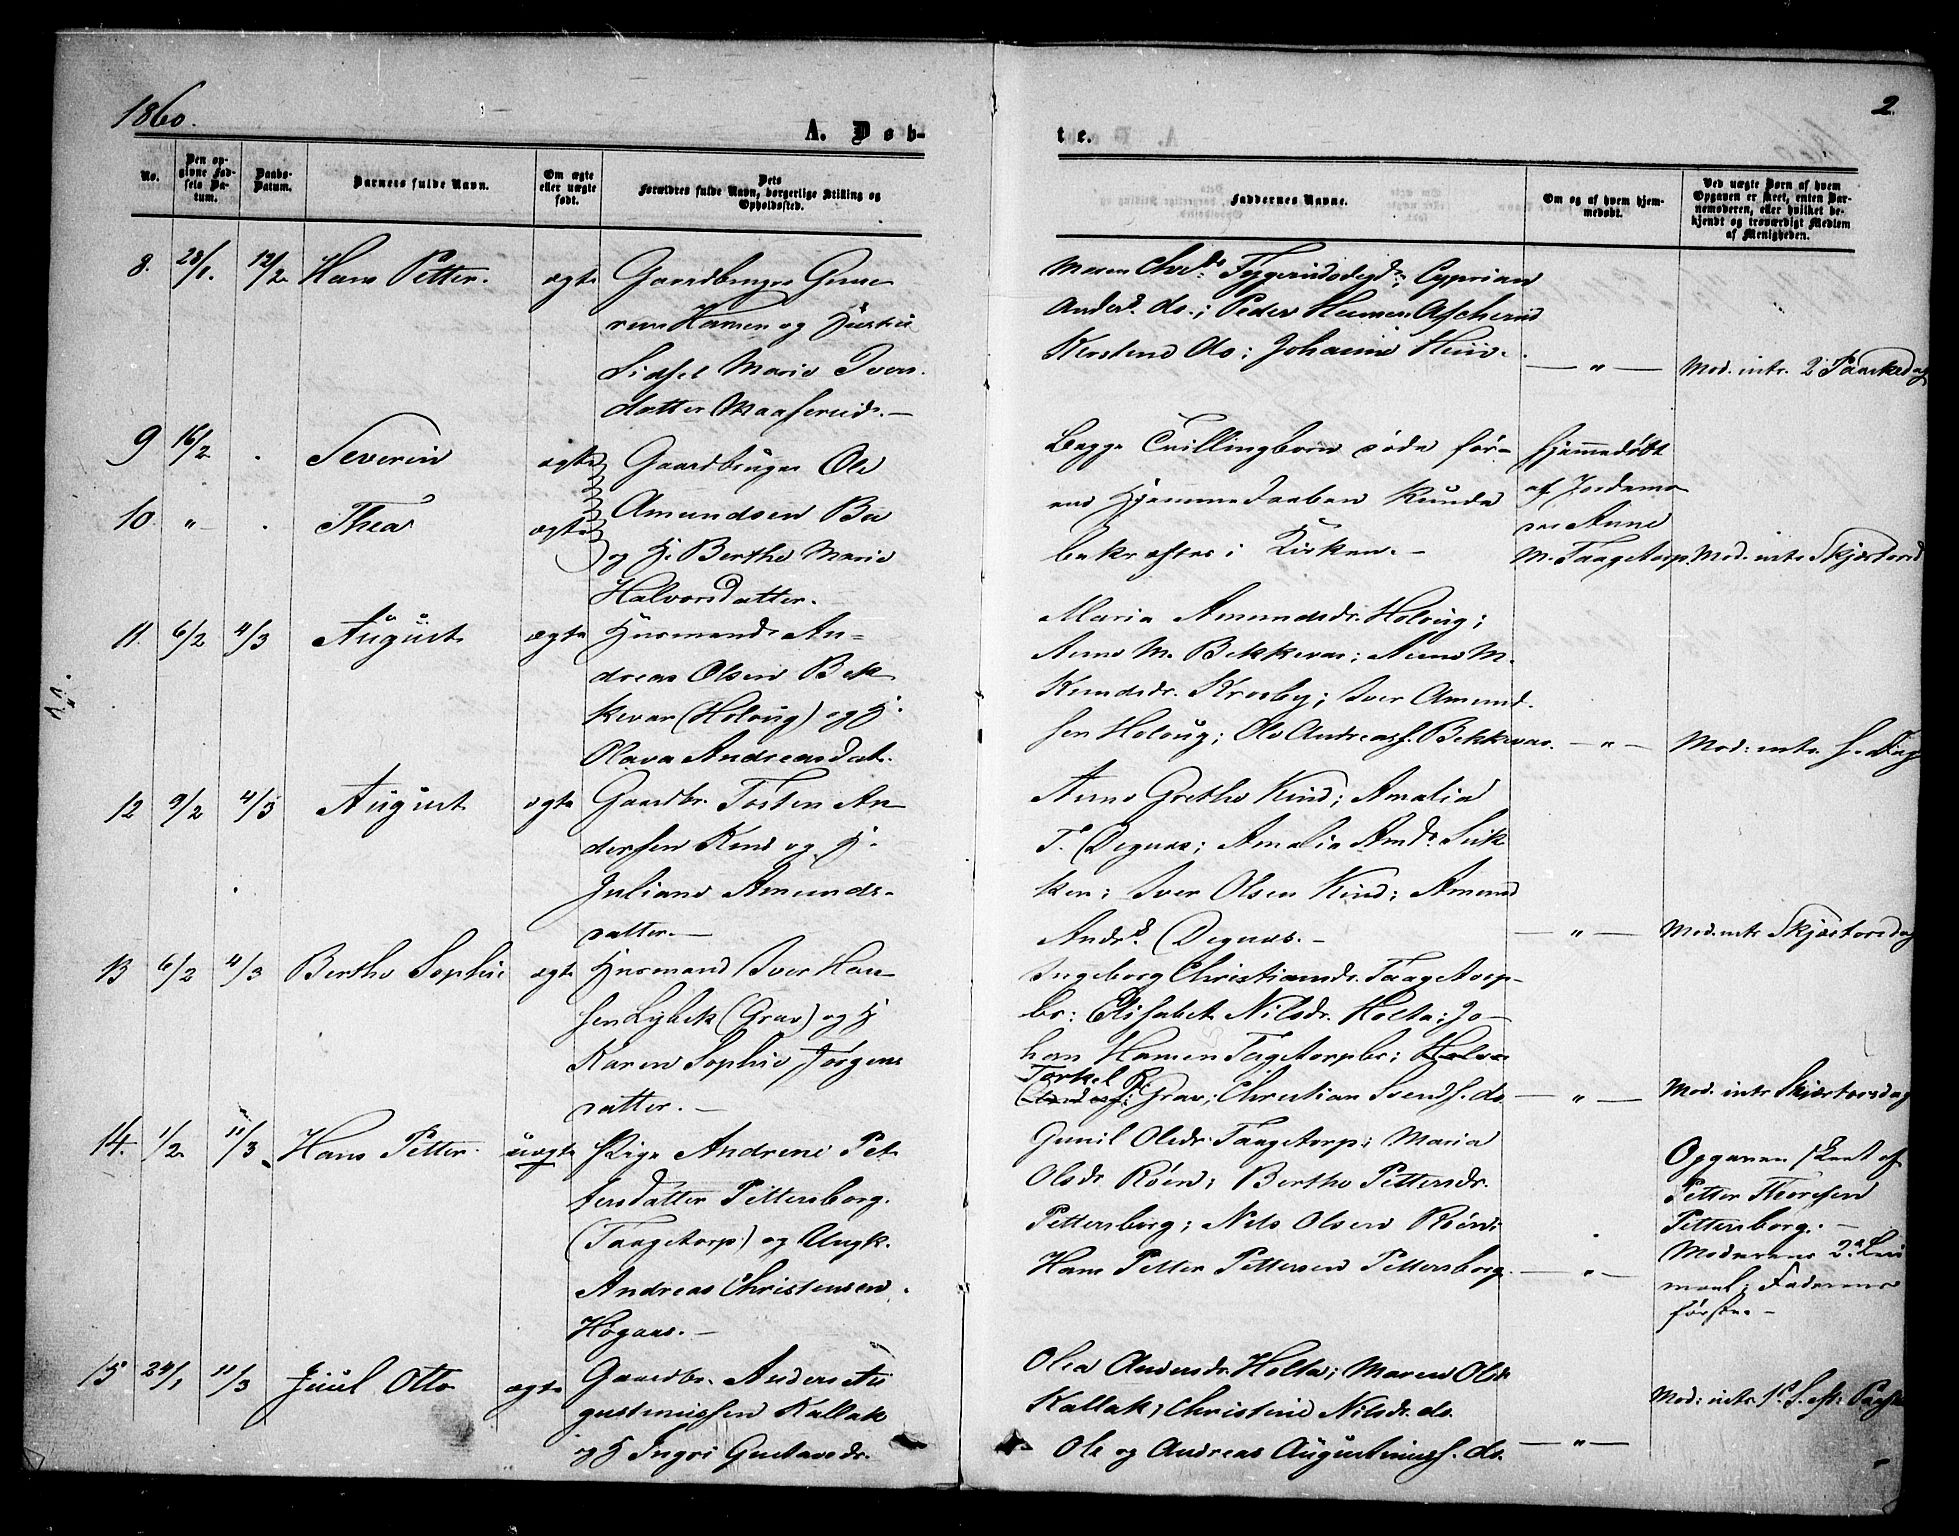 1860.
2
A. Døb-
te.
No.
Den op-
givne Fød-
sels Da-
tum.
Daabs-
Datum.
Barnets fulde Navn.
Om ægte
eller uægte
født.
Dets
Forældres fulde Navn, borgerlige Stilling og
Opholdssted.
Faddernes Navne.
Om og af hvem hjem-
medøbt.
Ved uægte Børn af hvem
Opgaven er skeet, enten Bar-
nemoderen, eller hvilket be-
kjendt og troværdigt Medlem
af Menigheden.
8. 28/1. 12/2. Hans Petter. ægte Gaardbruger
Hansen og Hustru
Lidsel Marie Ivers-
datter
Maren Chrd.
Anders. do.; Peder
Kirstine do; Johanne
— " — Mod. intr. 2 Paaskedag
9 16/2 . Severin ægte Gaardbruger Ole
10. " . Thea ægte Amundsen Bø
og H. Berthe Marie
Halvorsdatter.
Begge Tvillingbørn døde før-
end Hjemmedaaben kunde
bekræftes i Kirken. -
Hjemmedøbt
af Jordemo
Anne
M. Taagetorp. Mod. intr. Skjærtorsd
11. 6/2 4/3 August ægte Husmand An-
dreas Olsen Bek
kevar (Holoug) og H.
Olava Andreasdat.
Maria Amundsdr. Holoug;
Anne M. Bekkevar; Anne M.
Knudsdr. Krosby; Iver Amund-
sen Holoug; Ole Andreass. Bekkevar. — " — Mod: intr. s. Dag
12 9/2 4/3 August ægte Gaardbr. Torsten An-
dersen Kind og H.
Juliane Amunds-
datter. —
Anne Grethe Kind; Amalia
T. Degnæs; Amalia Amds.
Iver Olsen Kind; Amund
Andrs. Degnæs. — — " — Mod. intr Skjærtorsdag
13 6/2 4/3 Berthe Sophie ægte Husmand Iver Han-
sen Lybek (Grav) og H
Karen Sophie Jørgens
datter. —
Ingeborg Christiansdr. Taagetorp-
br: Elisabet Nilsdr. Holta; Jo-
han Hansen Tagetorpbr;
Torkel
Grav; Christian Svends. do. — " — Mod. intr Skjærtorsdag
14. 1/2 11/3 Hans Petter. uægte Pige Andrine Pet-
tersdatter Pettersborg.
(Taagetorp) og Ungk.
Andreas Christensen
Høgaas. —
Gunil Olsdr. Taagetorp; Maria
Olsdr Røed; Berthe Pettersdr.
Pettersborg; Nils Olsen Røed;
Hans Petter Pettersen Pettersborg. — " —
Opgaven skeet af
Petter
Pettersborg. —
Moderens 2det Leie
maal; Faderens
første. —
15 24/1 11/3 Juul Otto ægte Gaardbr. Anders Au
gustinussen Kallak
og H Ingri Gustavsdr.
Olea Andersdr. Holta; Maren Olsdr
Kallak; Christine Nilsdr. do.
Ole og Andreas Augustinuss. do. — " — Mod: intr. 1ste S. eft: Paaske